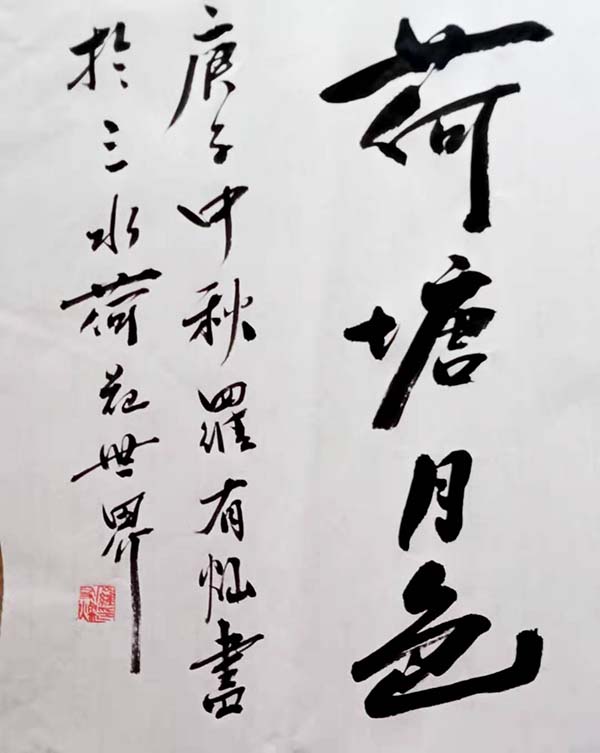 荷塘月色
庚子中秋羅有灿書
於三水荷花世界